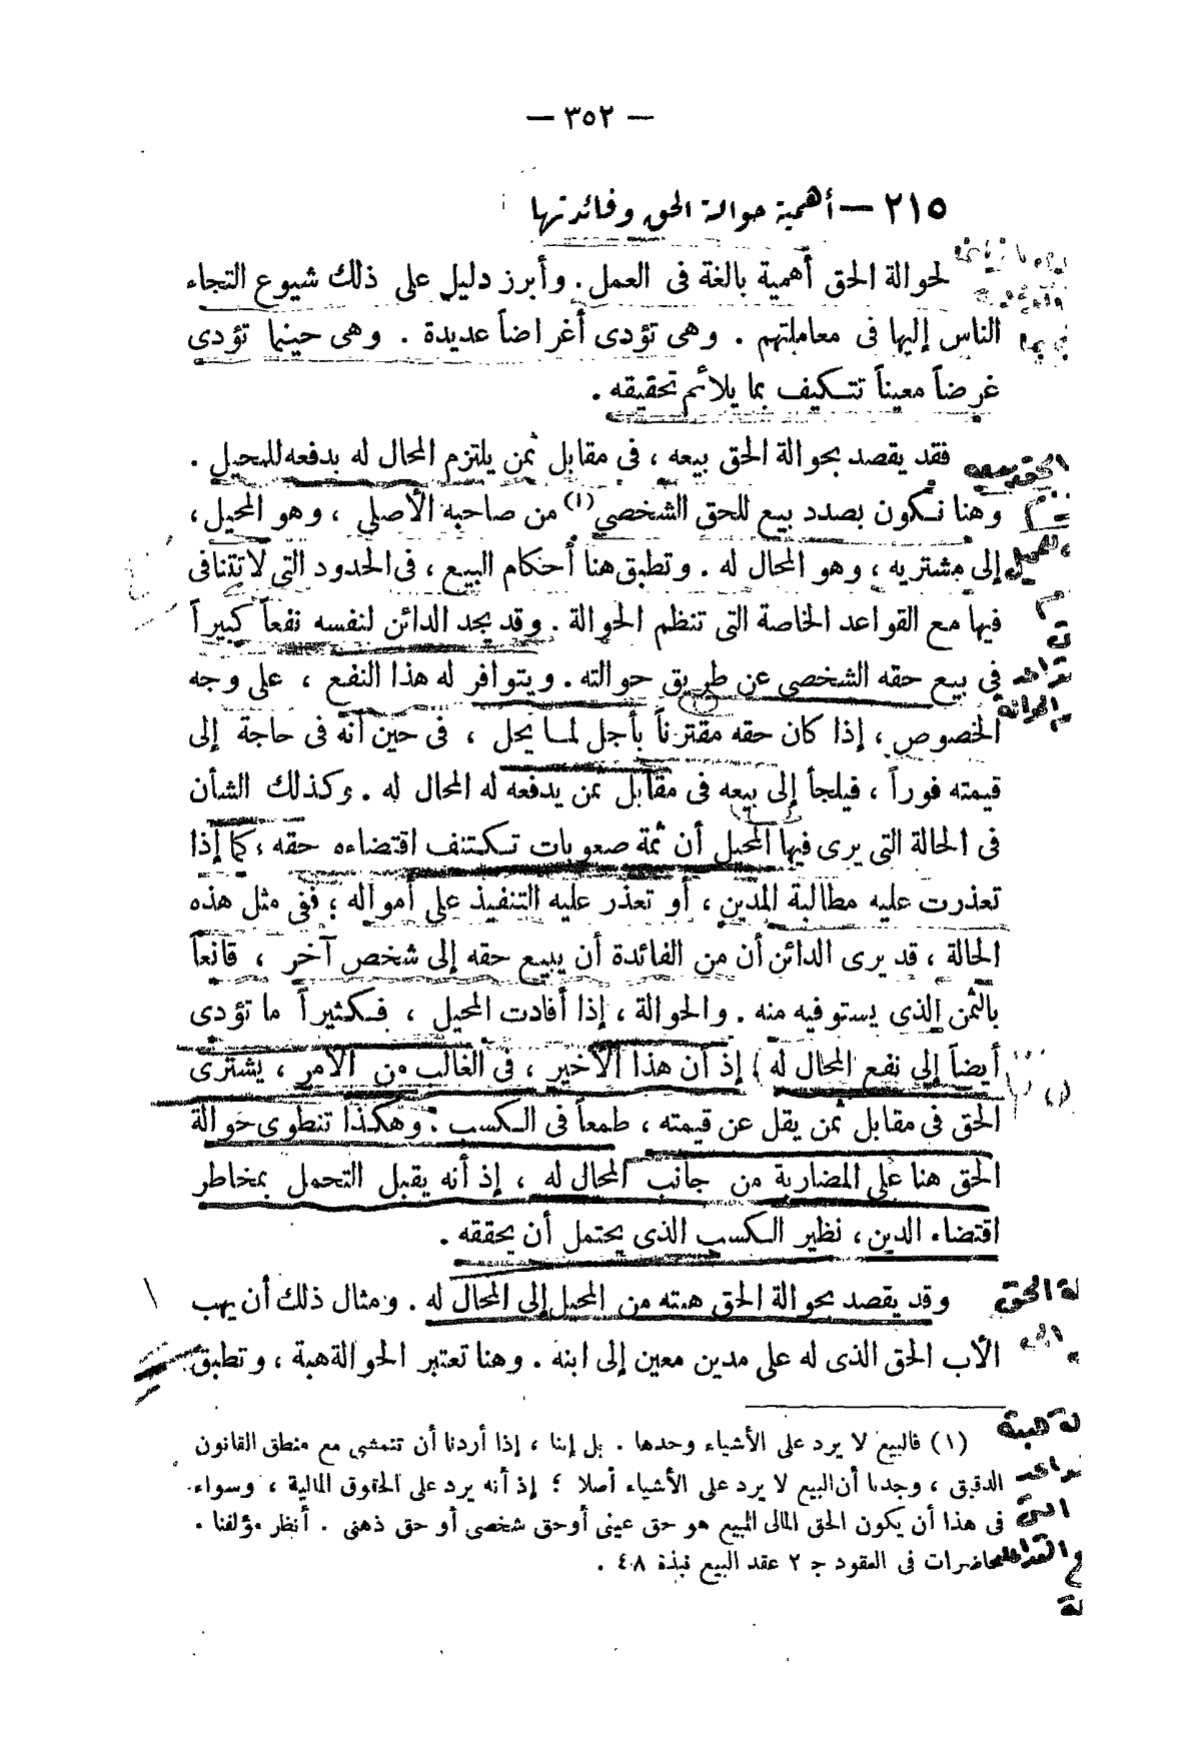 — ٣٥٢ —
٢١٥ — أهمية حوالة الحق وفائدتها
لحوالة الحق أهمية بالغة فى العمل. وأبرز دليل على ذلك شيوع التجاء
الناس إليها فى معاملتهم . وهى تؤدى أغراضاً عديدة . وهى حينما تؤدى
غرضاً معيناً تتكيف بما يلائم تحقيقه .
فقد يقصد بحوالة الحق بيعه ، فى مقابل ثمن يلتزم المحال له بدفعه للمحيل .
وهنا نكون بصدد بيع للحق الشخصي(١) من صاحبه الأصلي ، وهو المحيل ،
إلى مشتريه ، وهو المحال له . وتطبق هنا أحكام البيع ، فى الحدود التى لا تتنافى
فيها مع القواعد الخاصة التى تنظم الحوالة . وقد يجد الدائن لنفسه نفعاً كبيراً
فى بيع حقه الشخصى عن طريق حوالته . ويتوافر له هذا النفع ، على وجه
الخصوص ، إذا كان حقه مقترناً بأجل لما يحل ، فى حين أنه فى حاجة إلى
قيمته فوراً ، فيلجأ إلى بيعه فى مقابل ثمن يدفعه له المحال له . وكذلك الشأن
فى الحالة التى يرى فيها المحيل أن ثمة صعوبات تكتنف اقتضاءه حقه ، كما إذا
تعذرت عليه مطالبة المدين ، أو تعذر عليه التنفيذ على أمواله ؛ ففى مثل هذه
الحالة ، قد يرى الدائن أن من الفائدة أن يبيع حقه إلى شخص آخر ، قانعاً
بالثمن الذى يستوفيه منه . والحوالة ، إذا أفادت المحيل ، فكثيراً ما تؤدى
أيضاً إلى نفع المحال له ) إذ أن هذا الأخير ، فى الغالب من الأمر ، يشترى
الحق فى مقابل ثمن يقل عن قيمته ، طمعاً فى الكسب . وهكذا تنطوى حوالة
الحق هنا على المضاربة من جانب المحال له ، إذ أنه يقبل التحمل بمخاطر
اقتضاء الدين ، نظير الكسب الذى يحتمل أن يحققه .
وقد يقصد بحوالة الحق هبته من المحيل إلى المحال له . ومثال ذلك أن يهب
الأب الحق الذى له على مدين معين إلى ابنه . وهنا تعتبر الحوالة هبة ، وتطبق
(١) فالبيع لا يرد على الأشياء وحدها . بل إننا ، إذا أردنا أن نتمشى مع منطق القانون
الدقيق ، وجدنا أن البيع لا يرد على الأشياء أصلا ؛ إذ أنه يرد على الحقوق المالية ، وسواء
فى هذا أن يكون الحق المالى المبيع هو حق عينى أو حق شخصى أو حق ذهنى . أنظر مؤلفنا .
محاضرات فى العقود ج ٢ عقد البيع نبذة ٤٠٨ .